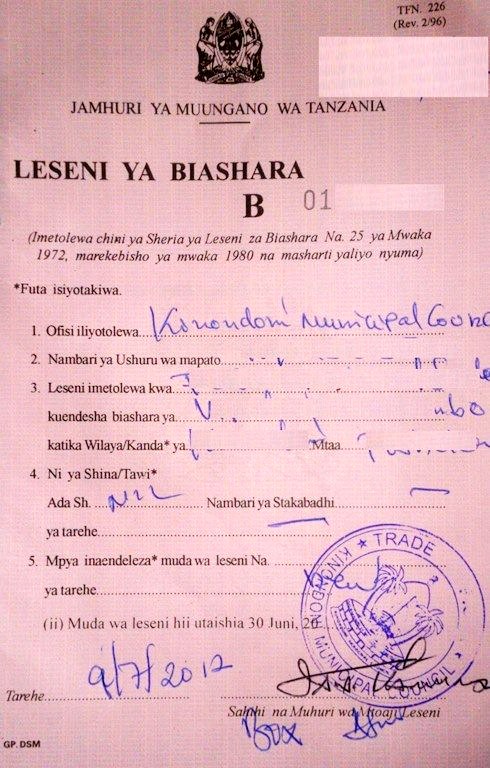 TFN. 226
(Rev. 2/96)
JAMHURI YA MUUNGANO WA TANZANIA
LESENI YA BIASHARA
B 01
(Imetolewa chini ya Sheria ya Leseni za Biashara Na. 25 ya Mwaka
1972, marekebisho ya mwaka 1980 na masharti yaliyo nyuma)
*Futa isiyotakiwa.
1. Ofisi iliyotolewa Kinondoni Municipal Counc
2. Nambari ya Ushuru wa mapato
3. Leseni imetolewa kwa
kuendesha biashara ya
katika Wilaya/Kanda* ya Mtaa
4. Ni ya Shina/Tawi*
Ada Sh. NIL Nambari ya Stakabadhi
ya tarehe
5. Mpya inaendeleza* muda wa leseni Na.
ya tarehe
(ii) Muda wa leseni hii utaishia 30 Juni, 20
KINONDONI MUNICIPAL COUNCIL ★ TRADE ★
Tarehe 9/7/2012
Sahihi na Muhuri wa Mtoaji Leseni
GP. DSM